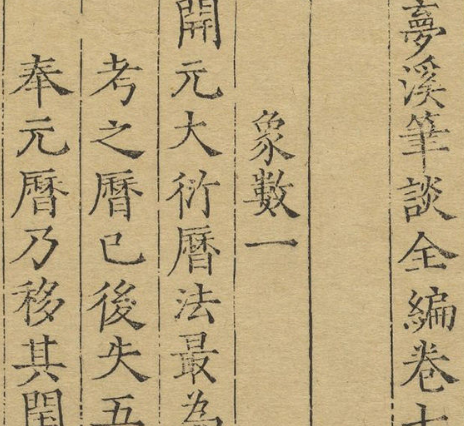 夢溪筆談全編卷七
象數一
開元大衍曆法最為
考之曆已後失五
奉元曆乃移其閏